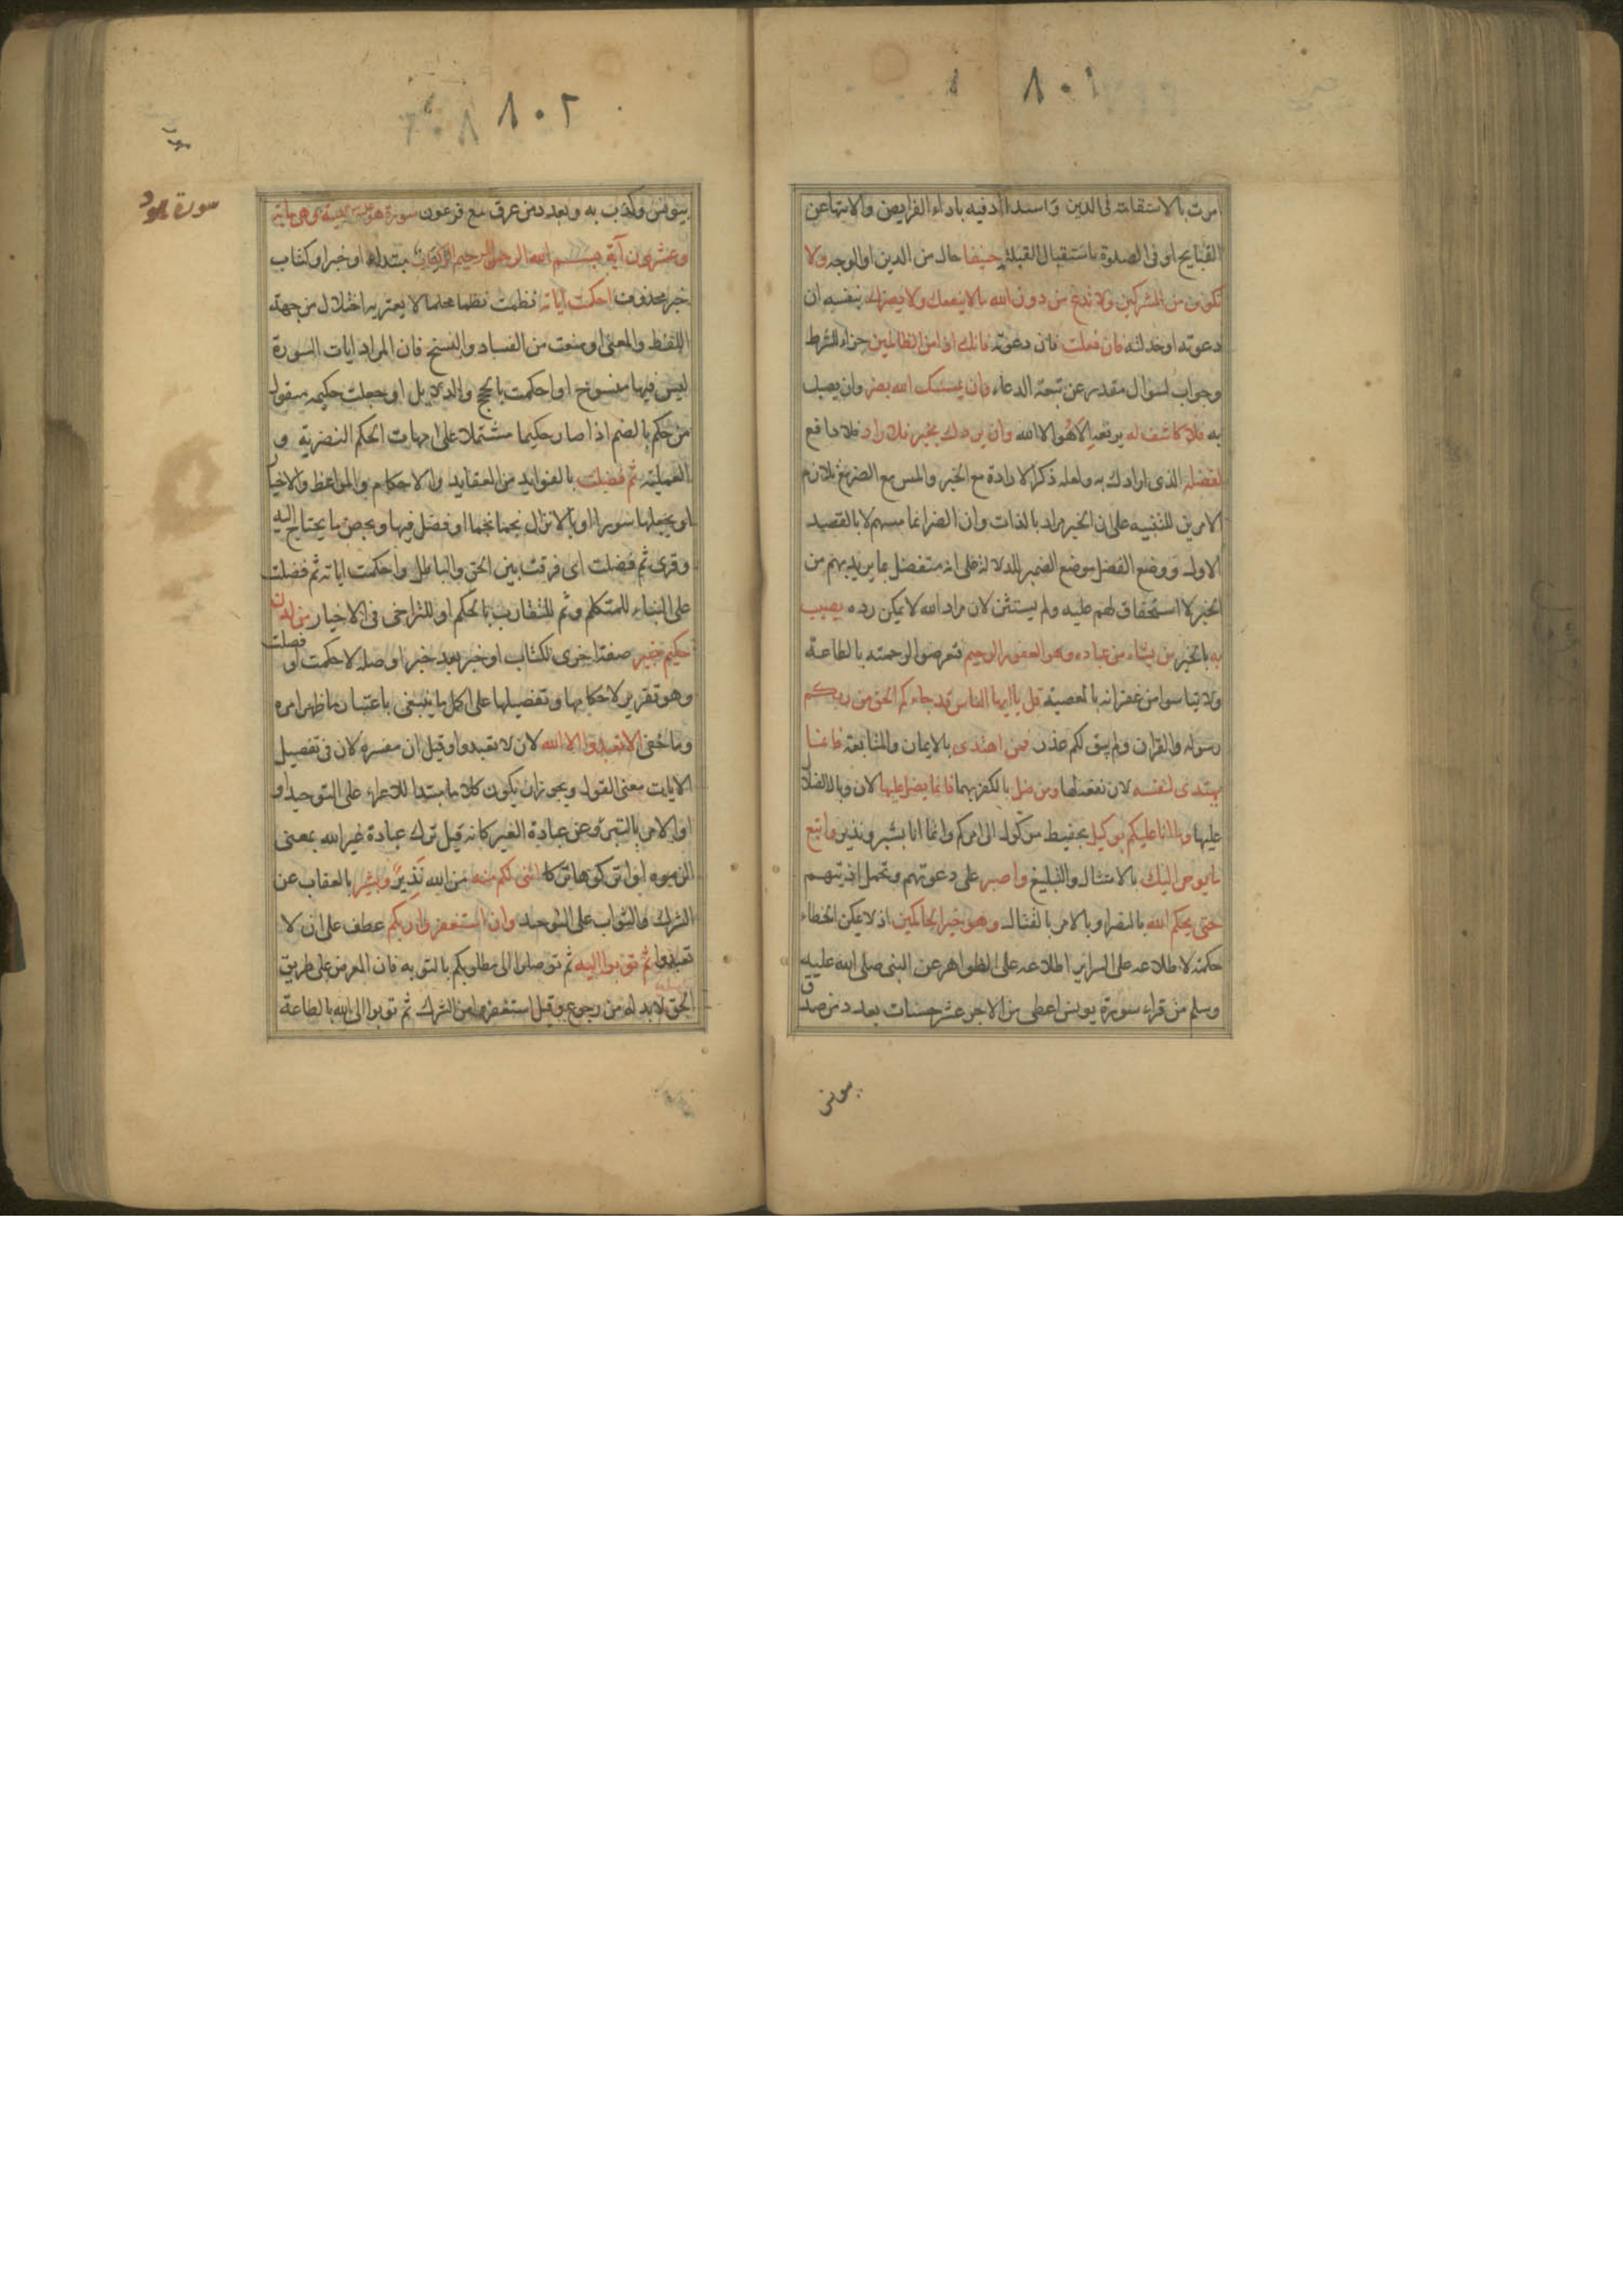 ٨٠١
امرت بالاستقامة فى الدين والاستبداد فيه باداء الفرايض والانتهاء عن
القبايح او فى الصلوة باستقبال القبلة حنيفا حال من الدين او الوجه ولا
تكونن من المشركين ولا تدع من دون الله ما لا ينفعك ولا يضرك بنفسه ان
دعوته او خذلته فان فعلت فان دعوته فانك اذا من الظالمين جزاء للشرط
وجواب لسوال مقدر عن تبعة الدعاء وان يمسسك الله بضر وان يصبك
به فلا كاشف له يرفعه الا هو الا الله وان يردك بخير فلا راد فلا دافع
لفضله الذى ارادك به ولعله ذكر الارادة مع الخير والمس مع الضر مع تلازم
الامرين للتنبيه على ان الخير مراد بالذات وان الضر انما مسهم لا بالقصد
الاول ووضع الفضل موضع الضمير للدلالة على انه متفضل بما يريد بهم من
الخير لا استحقاق لهم عليه ولم يستثن لان مراد الله لا يمكن رده يصيب
به بالخير من يشاء من عباده وهو الغفور الرحيم فتعرضوا لرحمته بالطاعة
ولا تياسوا من غفرانه بالمعصية قل يا ايها الناس قد جاءكم الحق من ربكم
رسوله والقران ولم يبق لكم عذر فمن اهتدى بالايمان والمتابعة فانما
يهتدى لنفسه لان نفعه لها ومن ضل بالكفر بهما فانما يضل عليها لان وبال الضلال
عليها وما انا عليكم بوكيل بحفيظ موكول الى امركم وانما انا بشير ونذير واتبع
ما يوحى اليك بالامتثال والتبليغ واصبر على دعوتهم وتحمل اذيتهم
حتى يحكم الله بالنصر او بالامر بالقتال وهو خير الحاكمين اذ لا يمكن الخطاء
حكمته لاطلاعه على السراير اطلاعه على الظواهر عن النبى صلى الله عليه
وسلم من قراء سورة يونس اعطى من الاجر عشر حسنات بعدد من صدق
يونس
٨٠٢
سورة هود
بيونس وكذب به وبعدد من غرق مع فرعون سورة هود مكية وهى ماية
وعشرون آية بسم الله الرحمن الرحيم الر كتاب مبتداء او خبر او كتاب
خبر محذوف احكمت اياته نظمت نظما محكما لا يعتريه اختلال من جهة
اللفظ والمعنى او منعت من الفساد والنسخ فان المراد ايات السورة
ليس فيها منسوخ او احكمت بالحجج والدلايل او جعلت حكيمة منقول
من حكم بالضم اذا صار حكيما مشتملة على امهات الحكم النظرية و
العملية ثم فصلت بالفوايد من العقايد والاحكام والمواعظ والاخبار
او بجعلها سورا او بالانزال نجما نجما او فصل فيها ولخص ما يحتاج اليه
وقرئ ثم فصلت اى فرقت بين الحق والباطل واحكمت اياته ثم فصلت
على البناء للمتكلم وثم للتقارب بالحكم او للتراخى فى الاخبار من لدن
حكيم خبير صفة اخرى لكتاب او خبر بعد خبر او صلة لاحكمت او فصلت
وهو تقرير لاحكامها وتفصيلها على اكمل ما ينبغى باعتبار ما ظهر امره
وما خفى الا تعبدوا الا الله لان لا تعبدوا وقيل ان مفسرة لان فى تفصيل
الايات معنى القول ويجوز ان يكون كلاما مبتدا للاغراء على التوحيد او
او الامر بالتبرؤ عن عبادة الغير كانه قيل ترك عبادة غير الله بمعنى
الزموه او اتركوها تركا اننى لكم منه من الله نذير وبشير بالعقاب عن
الشرك والثواب على التوحيد وان استغفروا ربكم عطف على ان لا
تعبدوا ثم توبوا اليه ثم توصلوا الى مطلوبكم بالتوبة فان المعرض عن طريق
الحق لا بد له من رجوع وقيل استغفروا من الشرك ثم توبوا الى الله بالطاعة